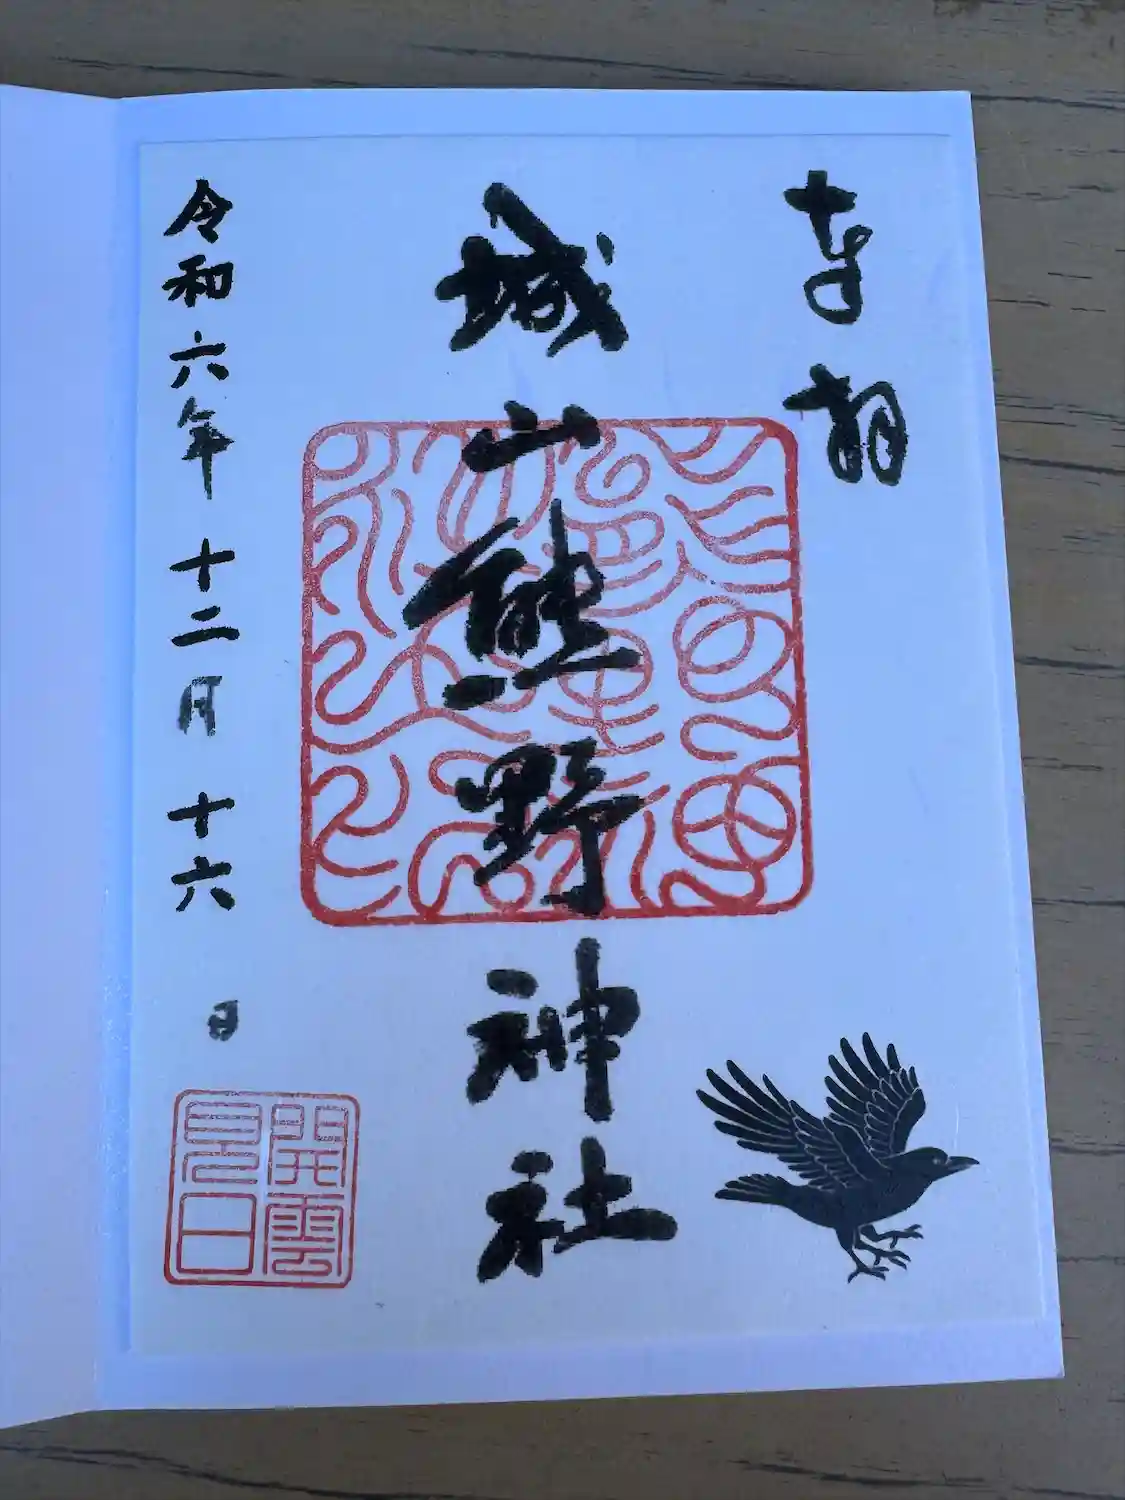 奉拝
城山熊野神社
令和六年十二月十六日
開雲見日